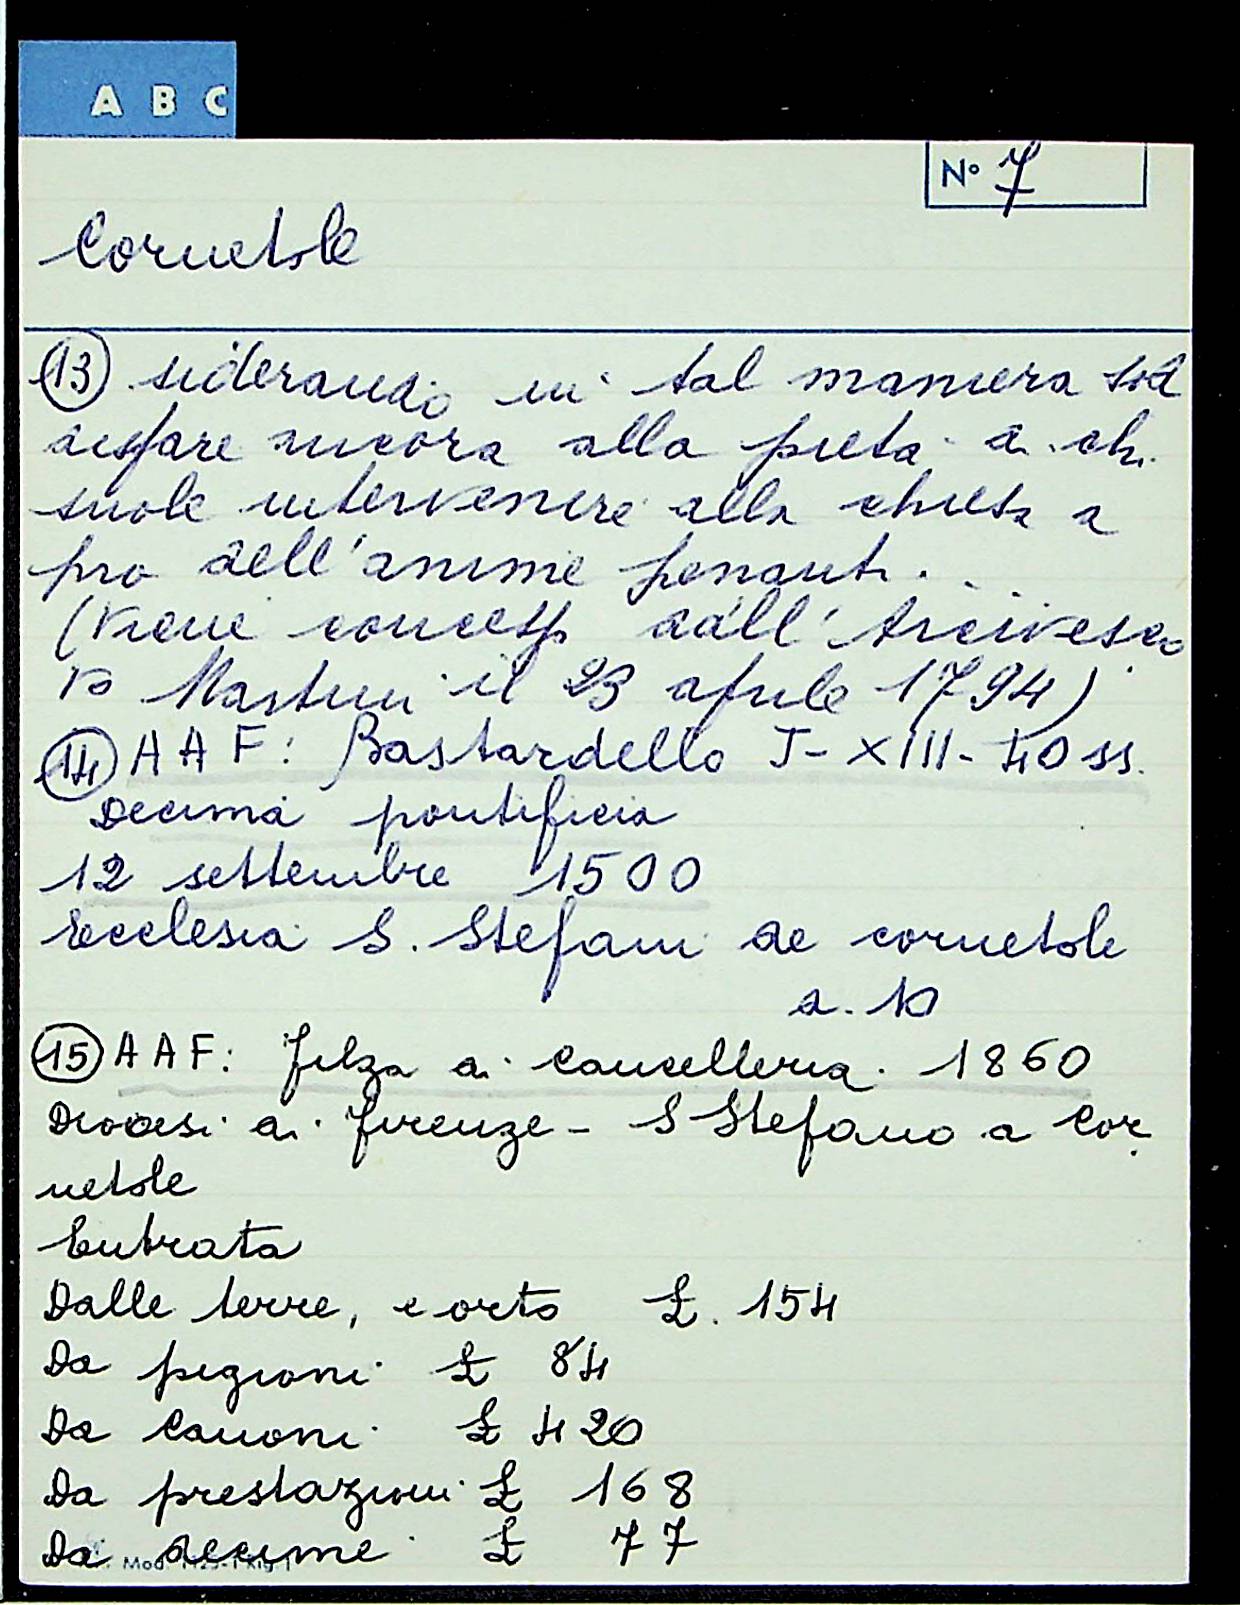 A B C
N° 7
Cornetole
13 siderando in tal maniera sod
disfare ancora alla pietà di chi
suole intervenire alla chiesa a
pro dell'anime penanti.
(Viene concesso dall'Arcivesco
vo Martini il 23 aprile 1794)
14 AAF: Bastardello J-XIII-40 ss.
Decima pontificia
12 settembre 1500
Ecclesia S. Stefani de cornetole
15 AAF: filza di Cancelleria. 1860
Diocesi di firenze - S Stefano a Cor
netole
Entrata
Dalle terre, e orto £. 154
Da pigioni £ 84
Da Canoni £ 420
Da prestazioni £ 168
Da decime £ 77